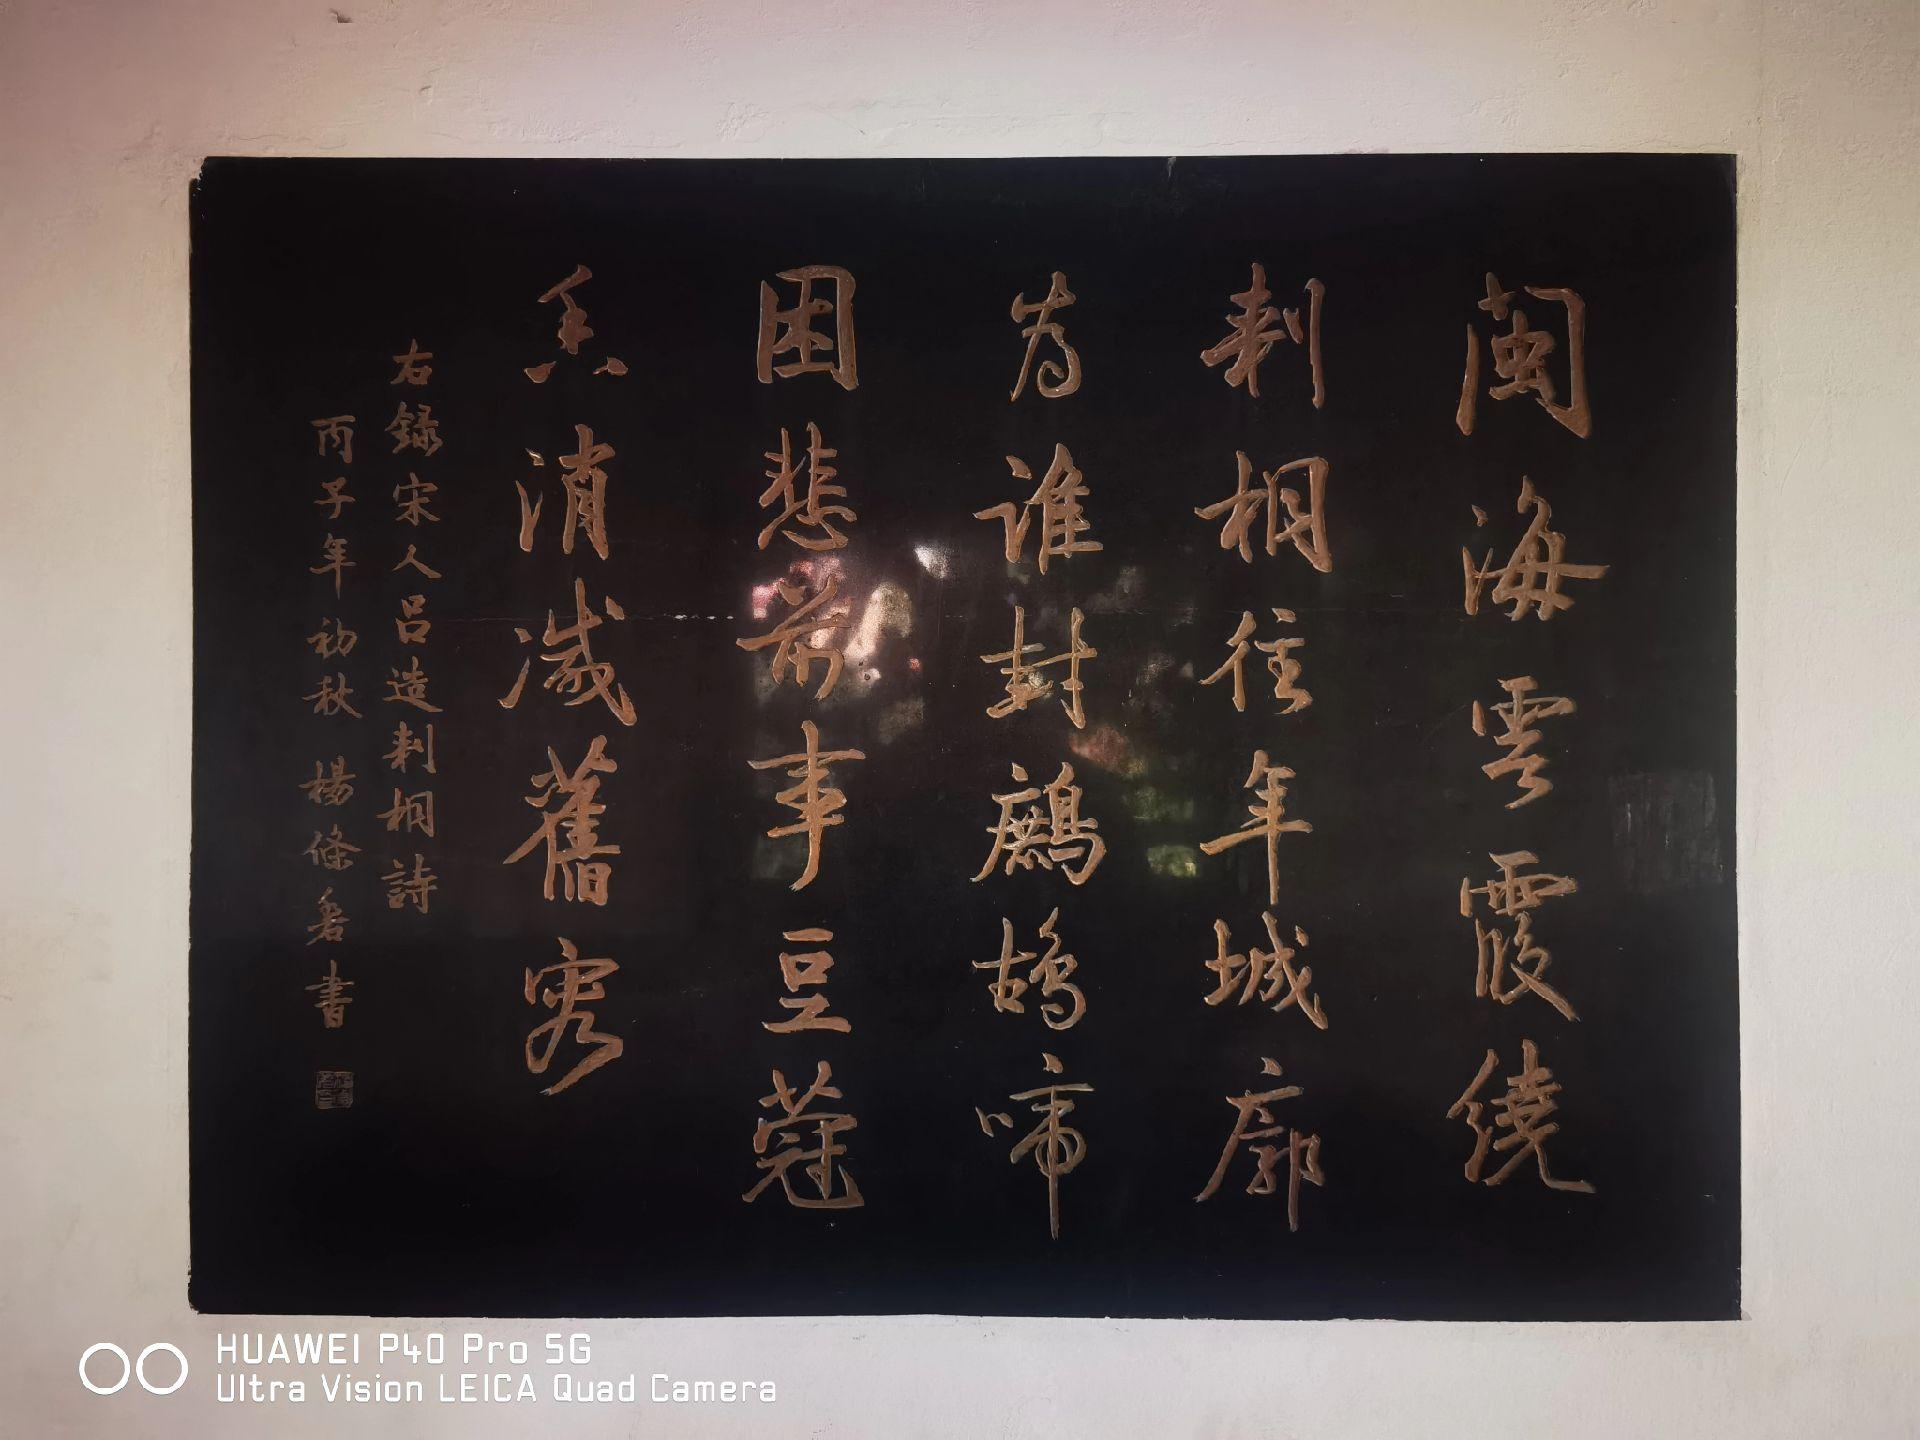 閩海雲霞繞
刺桐往年城廓
為誰封鷓鴣啼
困悲前事豆蔻
香消減舊容
右錄宋人呂造刺桐詩
丙子年初秋 楊條書
HUAWEI P40 Pro 5G
Ultra Vision LEICA Quad Camera